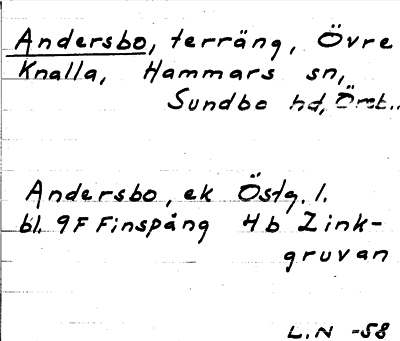 Andersbo, terräng, Övre
Knalla, Hammars sn,
Sundbo hd,
Andersbo, ek Östg. l.
bl. 9F Finspång 4b Zink-
gruvan
L.N -58